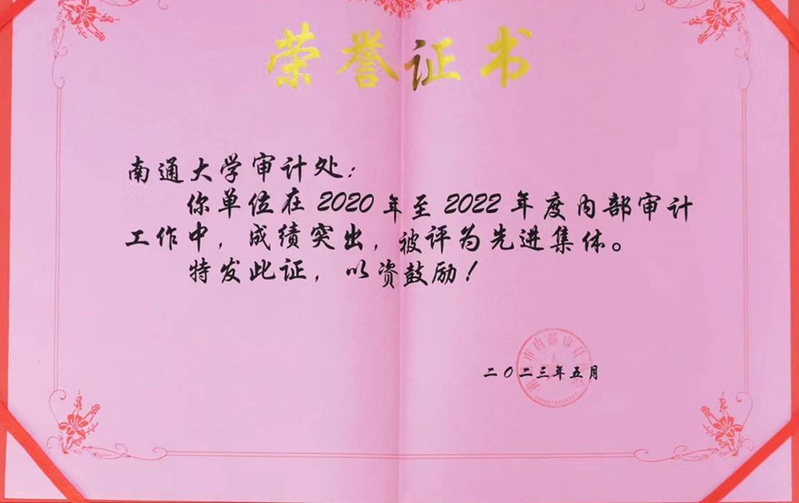 荣誉证书
南通大学审计处：
你单位在2020年至2022年度内部审计
工作中，成绩突出，被评为先进集体。
特发此证，以资鼓励！
市内部审计
二〇二三年五月